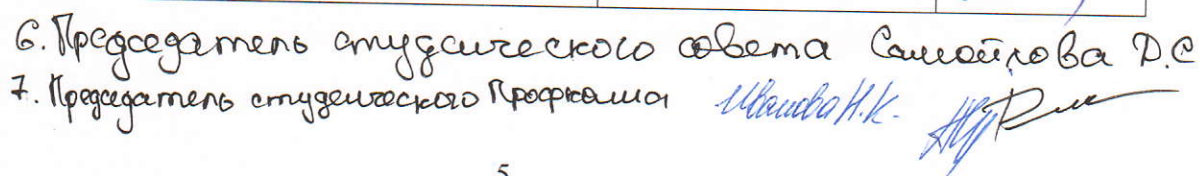 6. Председатель студенческого совета Самойлова Д.С
7. Председатель студенческого Профкома Иванова Н.К.
5